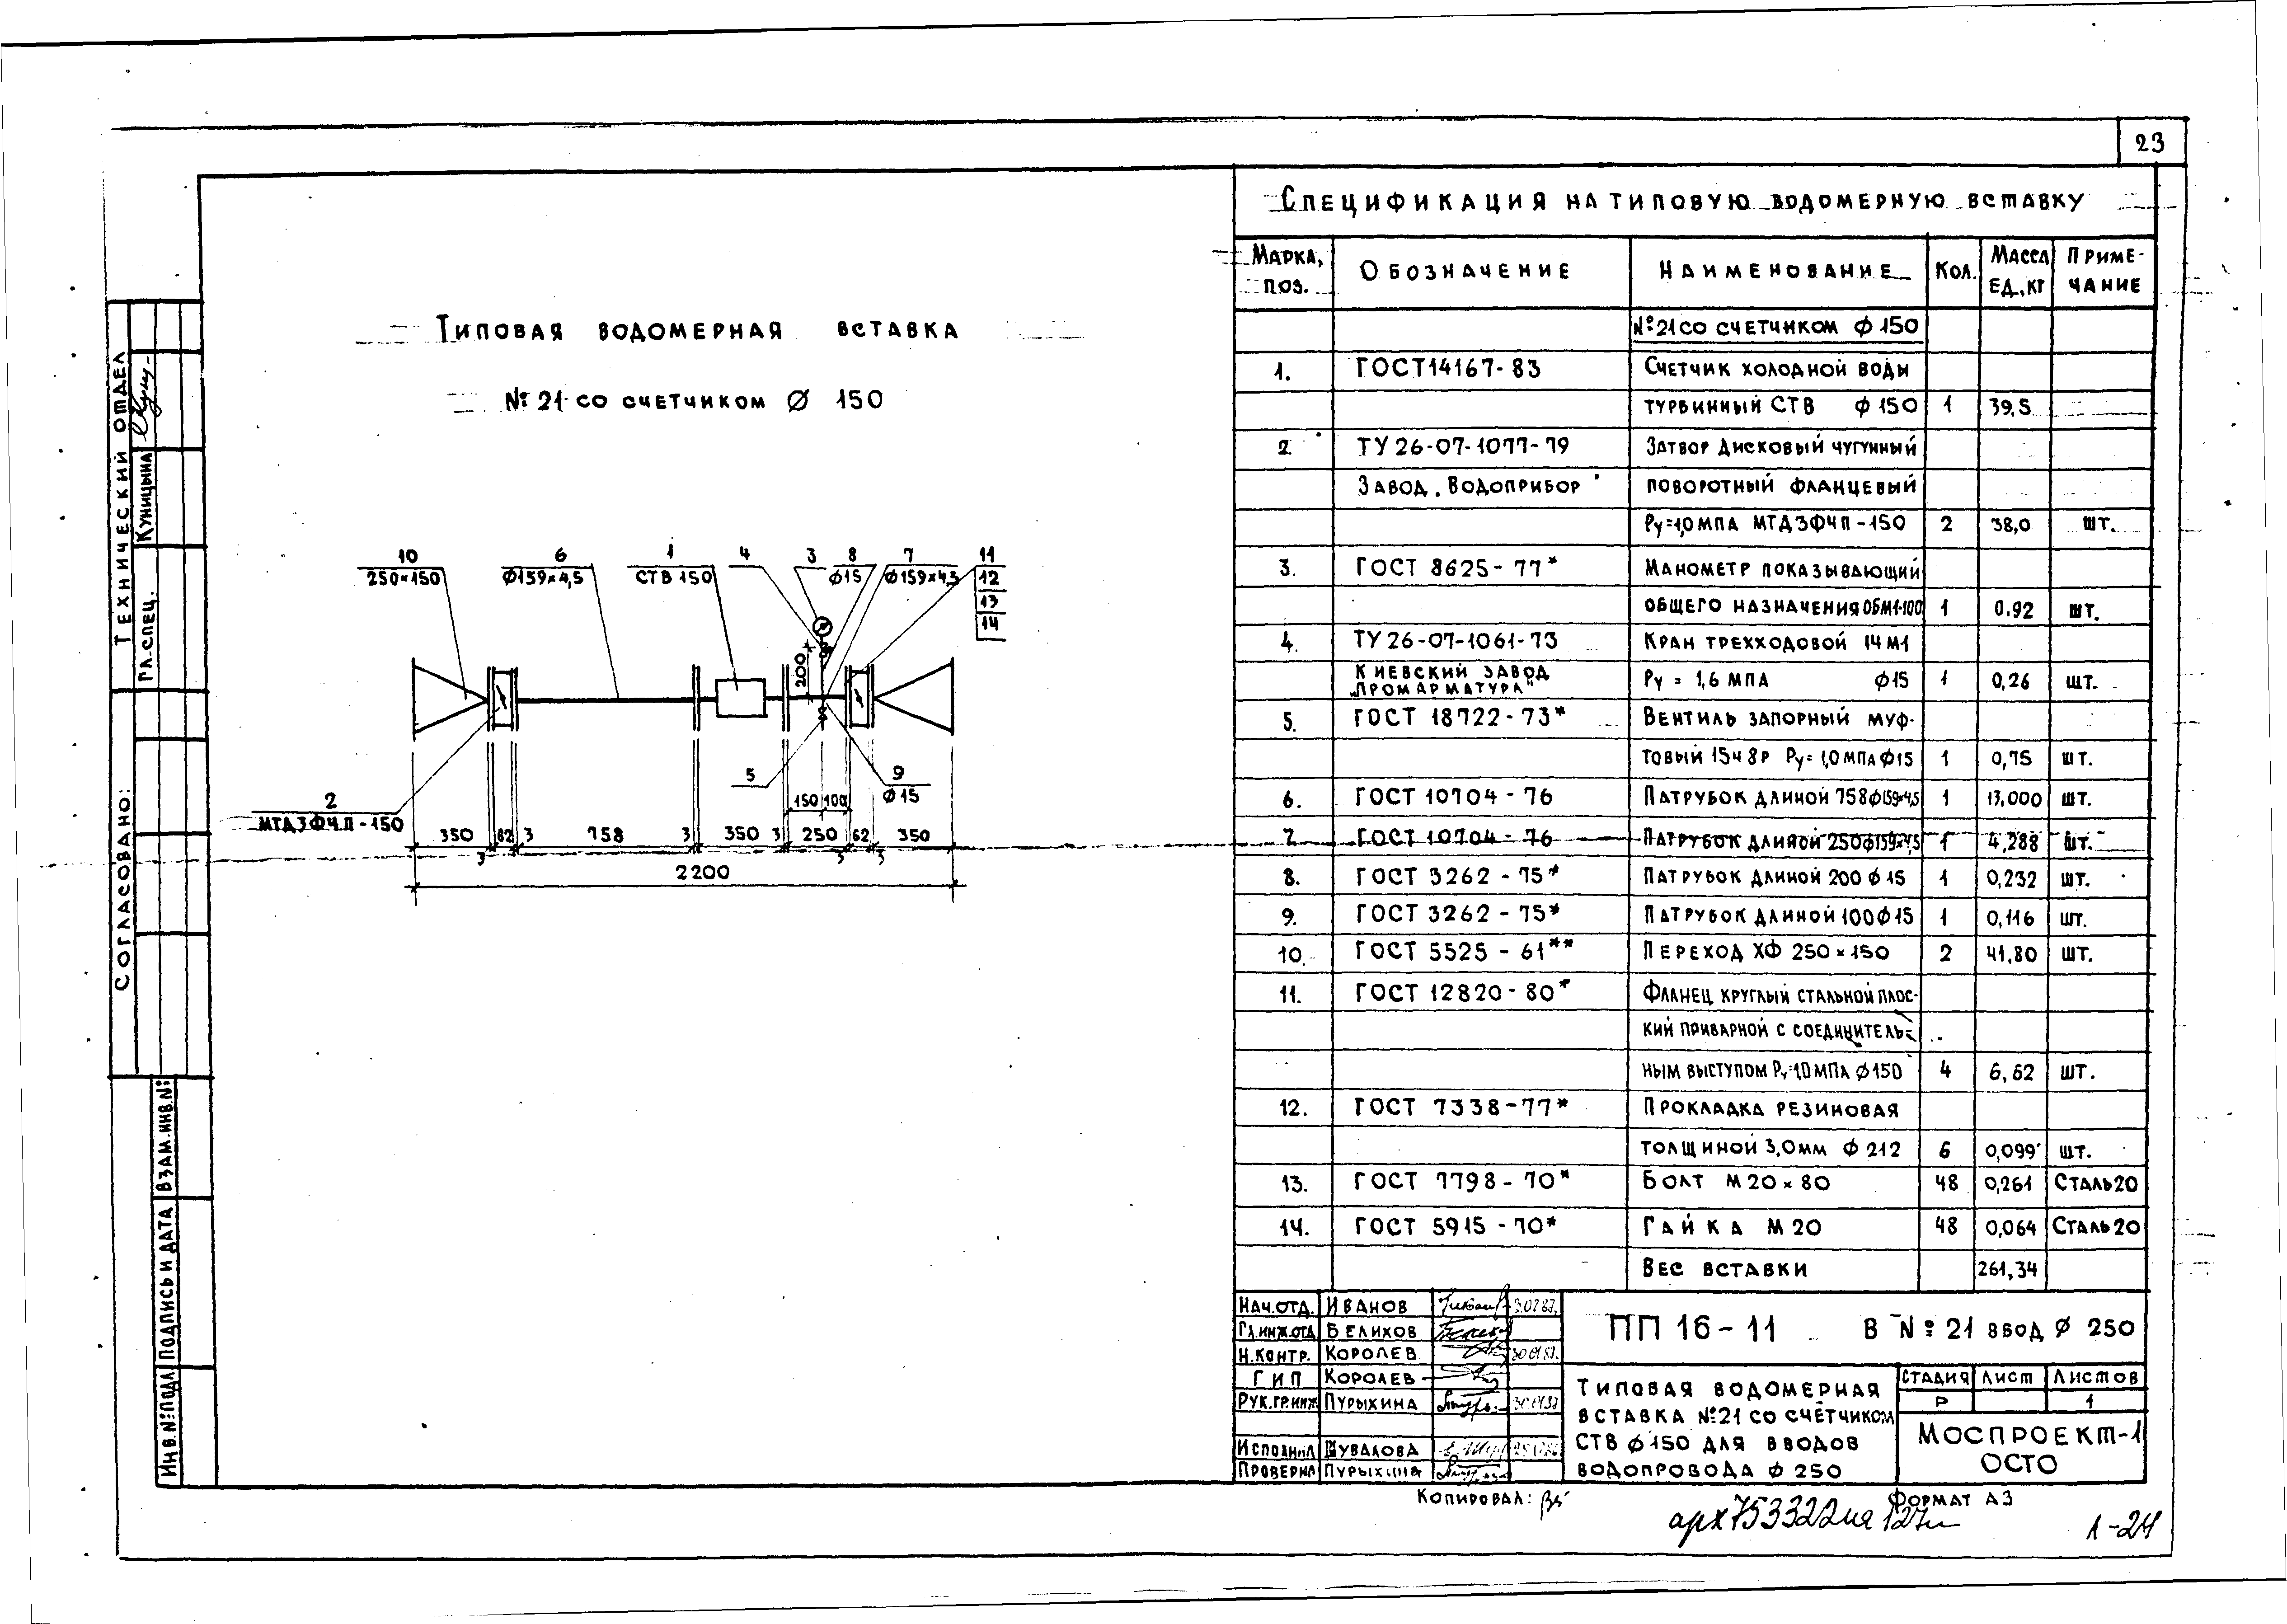 23
Спецификация на типовую водомерную вставку
Марка, поз. Обозначение Наименование Кол. Масса ед., кг Примечание
№21 со счетчиком ф 150
1. ГОСТ 14167-83 Счетчик холодной воды
турбинный СТВ ф 150 1 39,5
2 ТУ 26-07-1077-79 Затвор дисковый чугунный
Завод „Водоприбор" поворотный фланцевый
Ру=1,0 МПа МТДЗФЧП-150 2 38,0 шт.
3. ГОСТ 8625-77* Манометр показывающий
общего назначения ОБМ1-100 1 0.92 шт.
4. ТУ 26-07-1061-73 Кран трехходовой 14М1
Киевский завод „Промарматура" Ру = 1,6 МПа ф15 1 0,26 шт.
5. ГОСТ 18722-73* Вентиль запорный муф-
товый 15ч8р Ру=1,0 МПа ф15 1 0,75 шт.
6. ГОСТ 10704-76 Патрубок длиной 758 ф159×4,5 1 13,000 шт.
7. ГОСТ 10704-76 Патрубок длиной 250 ф159×4,5 1 4,288 шт.
8. ГОСТ 3262-75* Патрубок длиной 200 ф 15 1 0,232 шт.
9. ГОСТ 3262-75* Патрубок длиной 100 ф 15 1 0,116 шт.
10. ГОСТ 5525-61** Переход ХФ 250×150 2 41,80 шт.
11. ГОСТ 12820-80* Фланец круглый стальной плос-
кий приварной с соединитель-
ным выступом Ру=1,0 МПа ф150 4 6,62 шт.
12. ГОСТ 7338-77* Прокладка резиновая
толщиной 3,0 мм ф 212 6 0,099 шт.
13. ГОСТ 7798-70* Болт М20×80 48 0,261 Сталь 20
14. ГОСТ 5915-70* Гайка М20 48 0,064 Сталь 20
Вес вставки 261,34
Типовая водомерная вставка
№ 21 со счетчиком Ø 150
10 6 1 4 3 8 7 11
250×150 ф159×4,5 СТВ 150 ф15 ф159×4,5 12
13
14
200
2
МТДЗФЧП-150
5 9
ф15
150 100
350 62 3 758 3 350 3 250 62 350
3 3 3
2200
Технический отдел
Гл.спец. Куницына
Согласовано:
Взам.инв.№
Подпись и дата
Инв.№ подл
Нач.отд. Иванов 3.02.87.
Гл.инж.отд Белихов
Н.контр. Королев 30.01.87.
ГИП Королев
Рук.гр.инж Пурыхина 30.01.87
Исполнил Шувалова
Проверил Пурыхина
ПП 16-11 В № 21 ввод Ø 250
Типовая водомерная
вставка №21 со счётчиком
СТВ ф 150 для вводов
водопровода ф 250
Стадия Лист Листов
Р 1
Моспроект-1
ОСТО
Копировал:
Формат А3
арх 753322
1-24